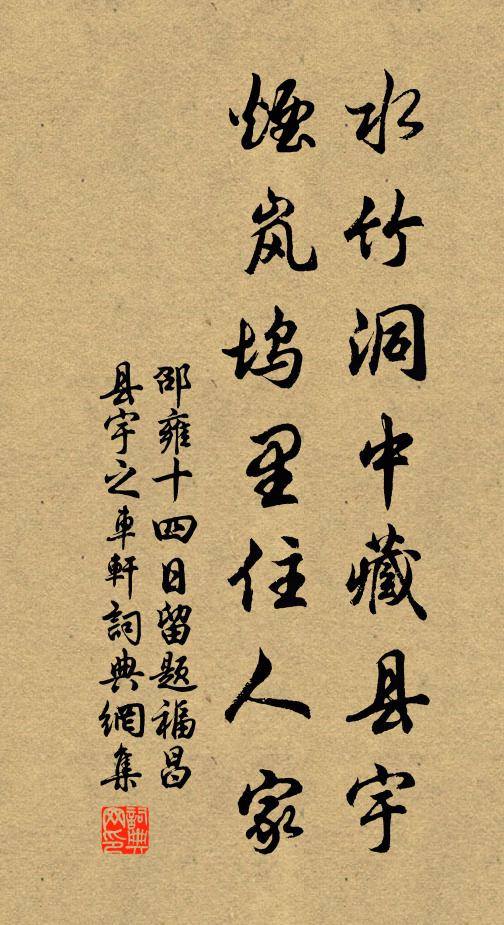 水竹洞中藏县宇
煙岚坞里住人家
邵雍十四日留题福昌
县宇之车軒詞典網集
詞典
网印